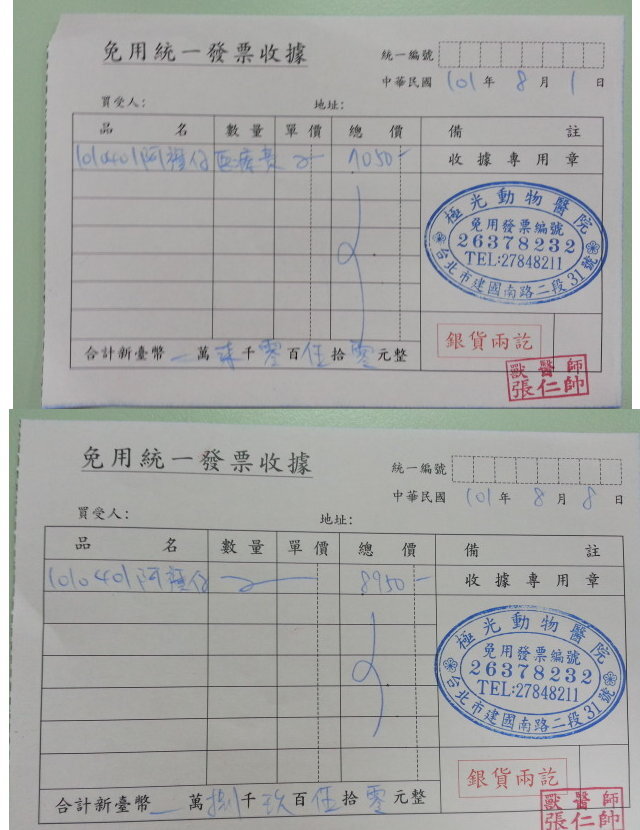 免用統一發票收據
統一編號
中華民國 101 年 8 月 1 日
買受人: 地址:
品 名 數量 單價 總 價 備 註
1010401阿福仔 医療費 7050- 收據專用章
極光動物醫院
免用發票編號
26378232
TEL:27848211
台北市建國南路二段31號
銀貨兩訖
合計新臺幣 一 萬 柒 千 零 百 伍 拾 零 元整
獸醫師
張仁帥
免用統一發票收據
統一編號
中華民國 101 年 8 月 8 日
買受人: 地址:
品 名 數量 單價 總 價 備 註
1010401阿福仔 8950- 收據專用章
極光動物醫院
免用發票編號
26378232
TEL:27848211
台北市建國南路二段31號
銀貨兩訖
合計新臺幣 一 萬 捌 千 玖 百 伍 拾 零 元整
獸醫師
張仁帥